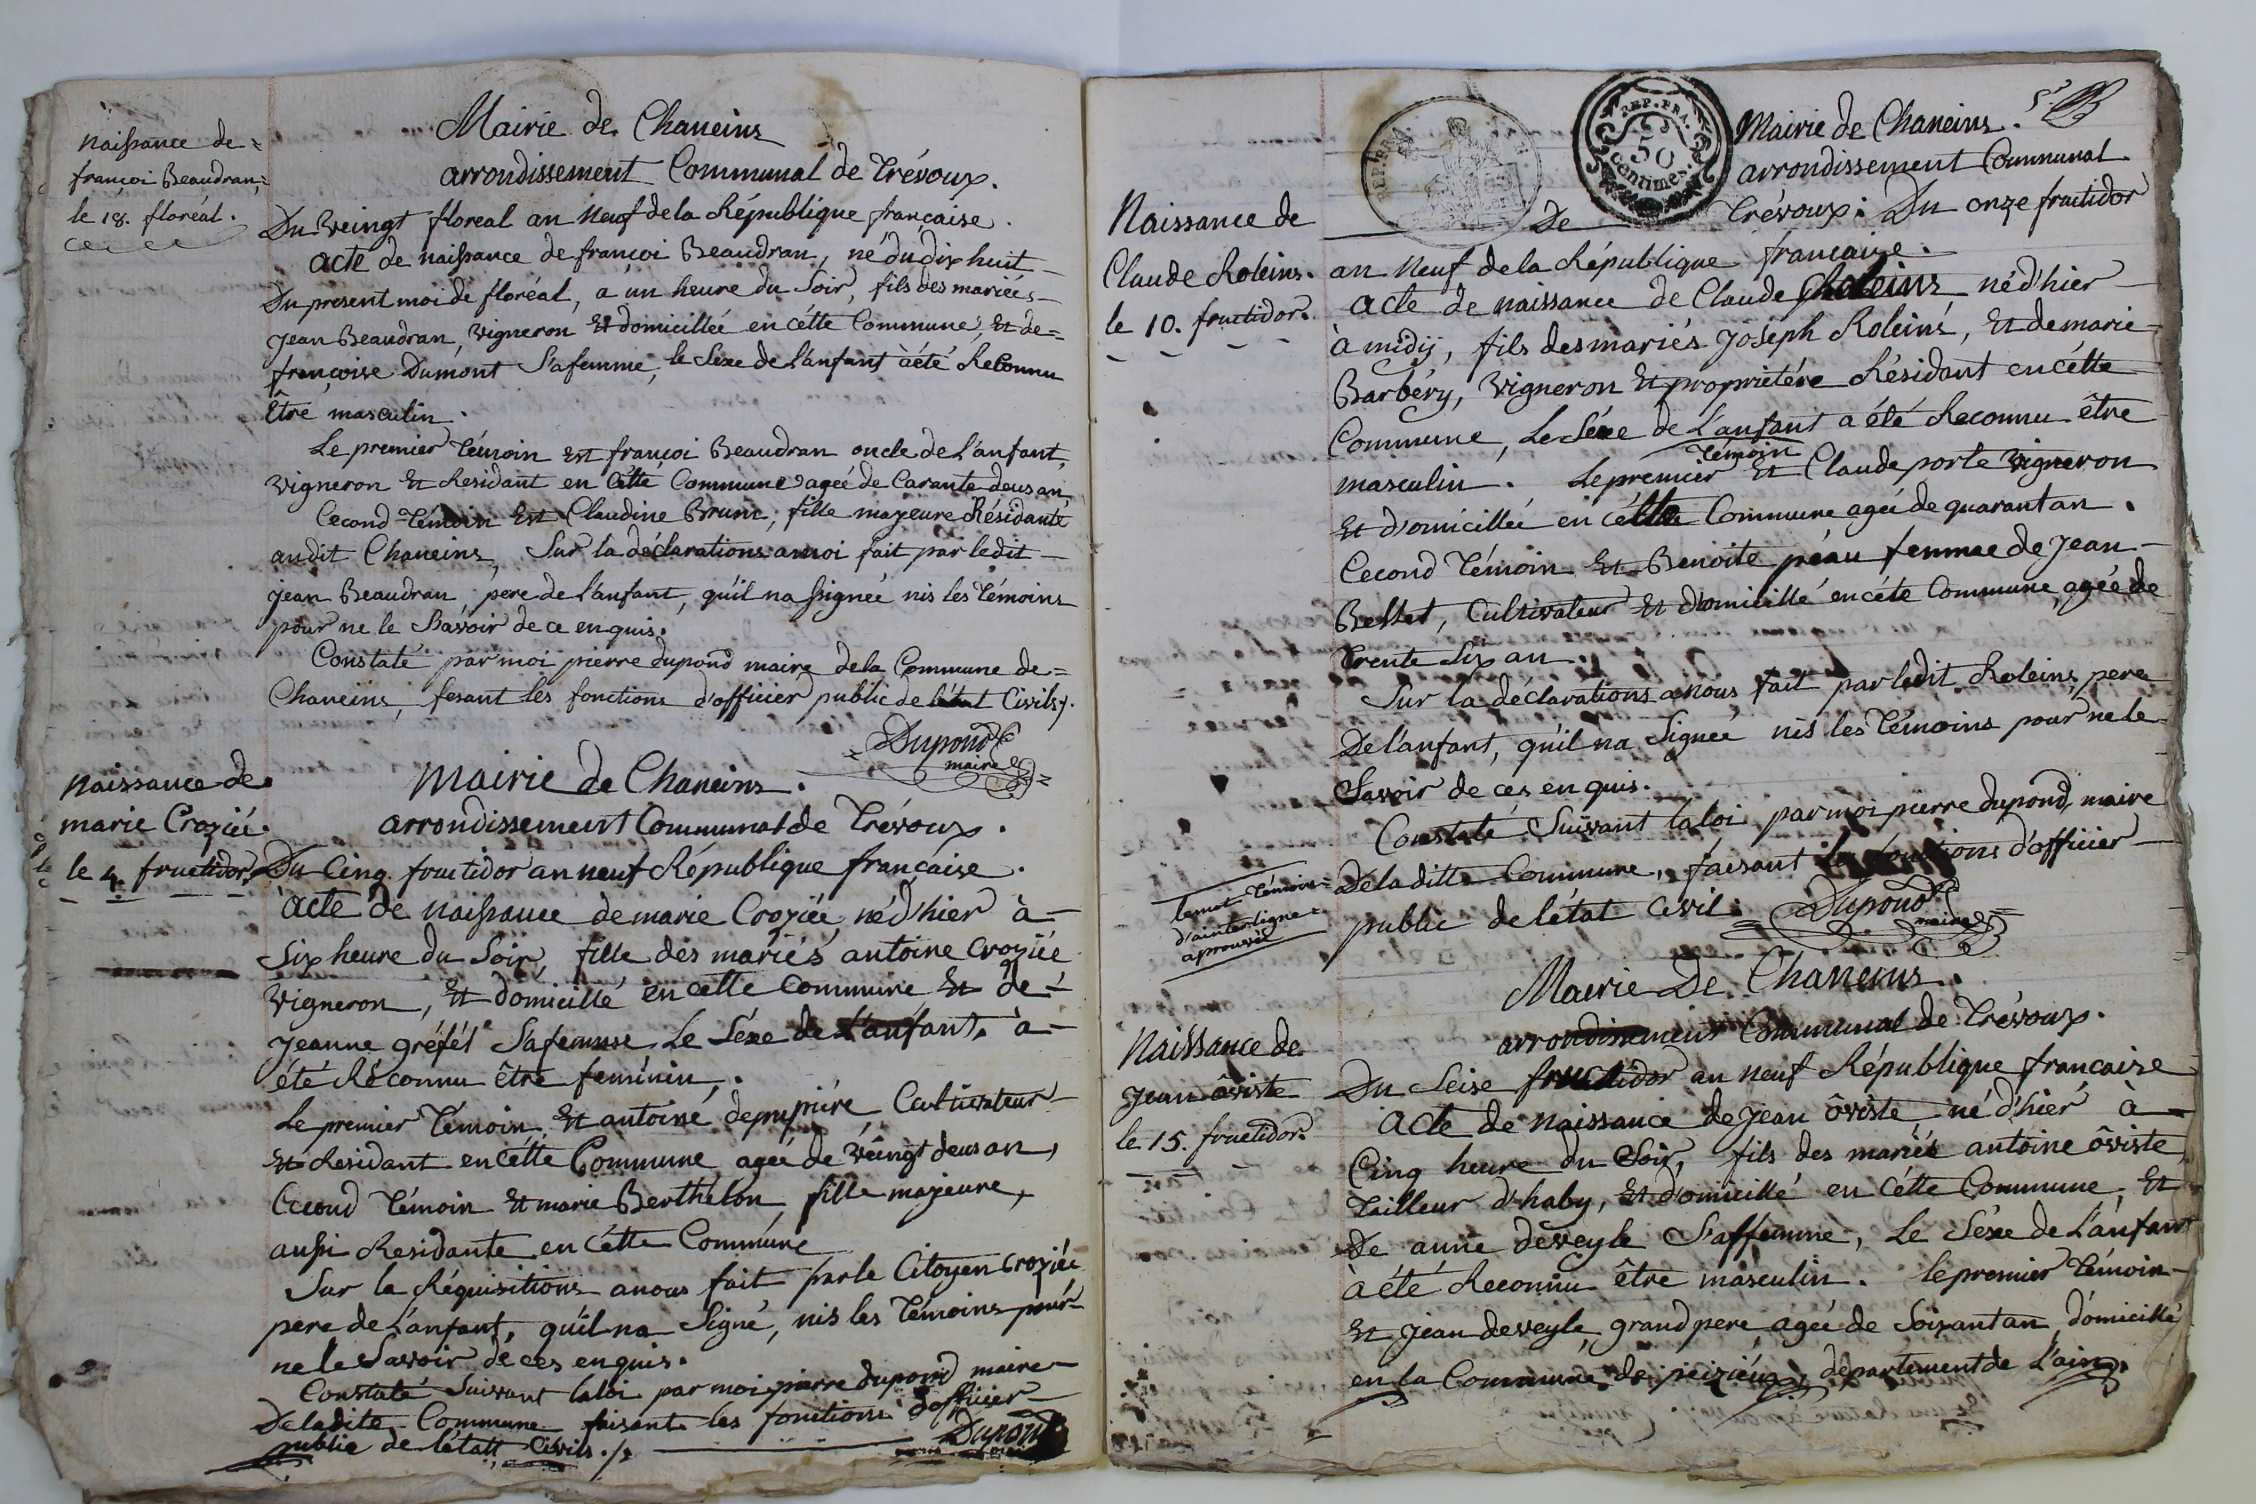 naissance de =
françoi Beaudran,=
le 18. floréal.
Mairie de Chaneins
arrondissement Communal de Trévoux.
Du Veingt floreal an Neuf de la République française.
acte de naissance de françoi Beaudran, né du dix huit
Du present moi de floréal, a un heure du Soir, fils des mariees
jean Beaudran, vigneron Et domicillée en cétte Commune, Et de =
françoise Dumont Safemme, le Séxe de L'anfant à été Reconnu
être masculin.
Le premier Témoin est françoi Beaudran oncle de L'anfant,
vigneron Et Residant en Cétte Commune agée de Carante deus an,
Cecond Témoin Est Claudine Brune, fille majeure Résidante
audit Chaneins, Sur la déclarations amoi fait par ledit
jean Beaudran, pere de l'anfant, qu'il na Signée nis les Témoins
pour ne le Savoir de ce en quis.
Constaté par moi pierre dupond maire de la Commune de =
Chaneins, fesant les fonctions d'officier public de létat Civils.
Dupond
maire
Naissance de
marie Croziée
le 4. fructidor.
Mairie de Chaneins.
arrondissement Communal de Trévoux.
Du Cinq fructidor an neuf République française.
acte de naissance de marie Croziée, né d'hier à
Six heure du Soir, fille des mariés antoine croziée
vigneron, Et domicillé en cétte commune Et de
jeanne gréfét Safemme Le Séxe de L'anfant, à
été Réconnu être feminin.
Le premier Témoin Et antoine depupiére Cultivateur
Et Residant en Cétte Commune agée de veingt deus an,
Cecond Témoin Et marie Berthélon fille majeure,
aussi Residante en Cétte Commune
Sur la Réquisitions anous fait par le Citoyen croziée
pere de L'anfant, qu'il na Signé, nis les Témoins pour
ne le Savoir de ces en quis.
Constaté Suivant la loi par moi pierre dupond maire
De ladite Commune faisant les fonctions d'officier
public de l'état civils.
Dupond
REP. FRA.
50
centimes.
REP. FRA.
Naissance de
Claude Roleins.
le 10. fructidor.
Mairie de Chaneins.
arrondissement Communal
De Trévoux. Du onze fructidor
an Neuf de la République francaise.
acte de naissance de Claude Roleins né d'hier
à midij, fils des mariés joseph Roleins, Et de marie
Barbéry, Vigneron Et propriétére Résidant en cétte
Commune, Le Séxe de L'anfant a été Reconnu être
Témoin
masculin. Le premier Et Claude porte vigneron
Et d'omicillée en cétte Commune agée de quarant an.
Cecond Témoin Et Benoite péau femme de jean
Bellet, Cultivateur Et d'omicillé en céte Commune agée de
trente Six an.
Sur la déclarations anous fait par ledit Roleins pere
De l'anfant, qu'il na Signée nis les Témoins pour ne le
Savoir de ces en quis.
Constaté Suivant la loi par moi pierre dupond, maire
De laditte Commune, faisant les fonctions d'officier
public de létat civil.
Dupond
maire
le mot Témoin =
d'ainterligne =
aprouvée
Naissance de
jean ôviste
le 15. fructidor.
Mairie De Chaneins.
arrondissement Communal de Trévoux.
Du Seise fructidor an neuf République francaise
acte de naissance de jean ôviste, né d'hier à
Cinq heure du Soir, fils des mariés antoine ôviste,
Tailleur d'haby, Et d'omicillé en Cétte Commune, Et
De anne deveyle Saffemme, Le Séxe de L'anfant
à été Reconnu être masculin. le premier Témoin
Et jean deveyle, grand pere agée de Soixant an d'omicillé
en la Commune de peizieux, département de L'ain.